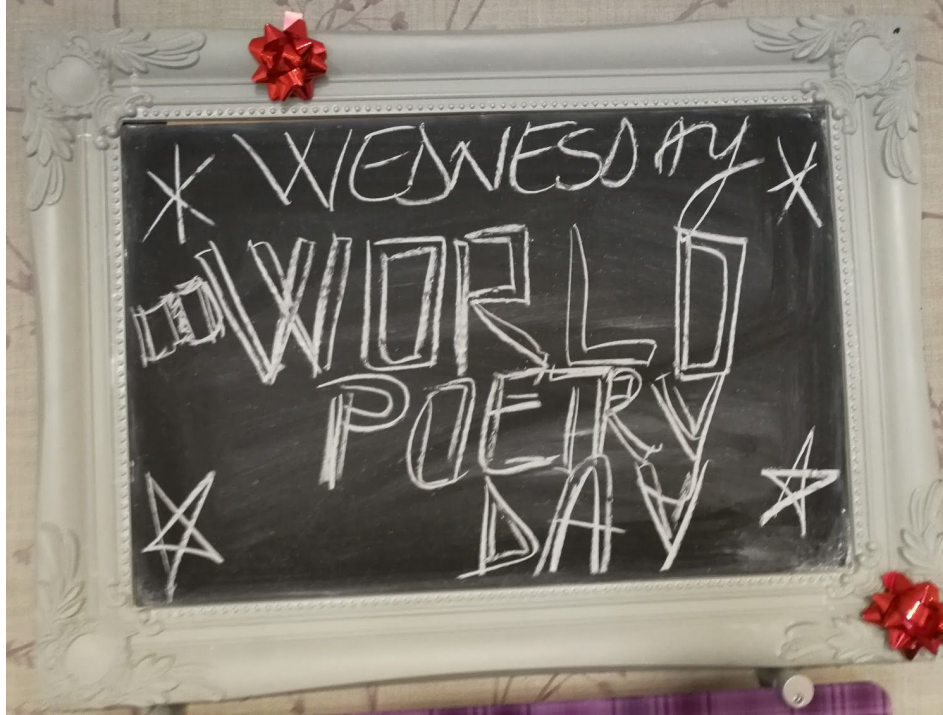 WEDNESDAY
WORLD
POETRY
DAY